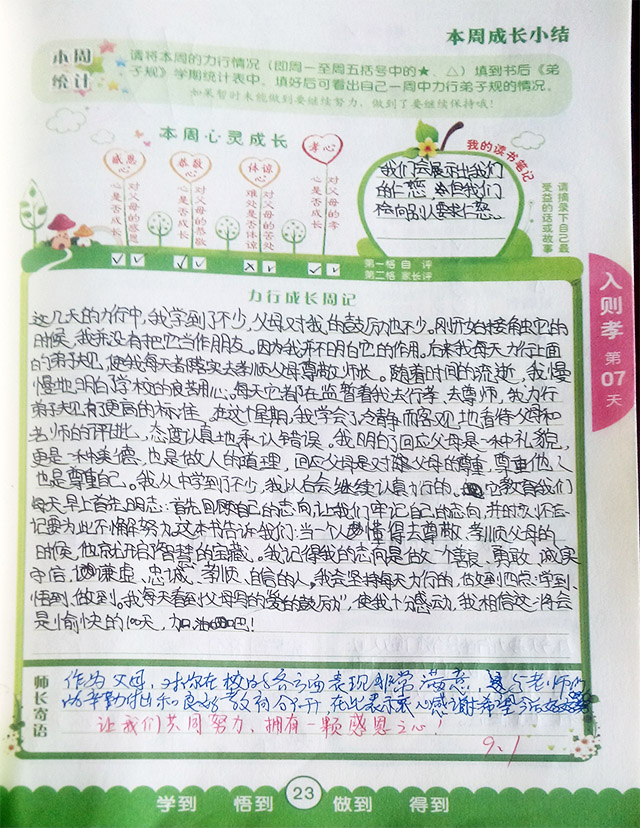 本周成长小结
本周
统计
请将本周的力行情况（即周一至周五括号中的★、△）填到书后《弟
子规》学期统计表中，填好后可看出自己一周中力行弟子规的情况。
如果暂时未能做到要继续努力，做到了要继续保持哦！
本周心灵成长
感恩心
对父母的感恩
心是否成长
恭敬心
对父母的恭敬
心是否成长
体谅心
对父母的苦处
难处是否体谅
孝心
对父母的孝
心是否成长
我的读书笔记
我们会展示出我们
的仁慈，但我们
不会向别人要求仁慈。
请摘录下自己最
受益的话或故事
第一格 自 评
第二格 家长评
入则孝 第07天
力行成长周记
这几天的力行中，我学到了不少，父母对我的鼓励也不少。刚开始接触它的
时候，我并没有把它当作朋友。因为我并不明白它的作用。后来我每天力行上面
的弟子规，使我每天都落实去孝顺父母尊敬师长。随着时间的流逝，我慢
慢地明白学校的良苦用心。每天它都在监督着我去行孝、去尊师，我力行
弟子规有更高的标准。在这个星期，我学会了冷静而客观地看待父母和
老师的评批，态度认真地承认错误。我明白了回应父母是一种礼貌，
更是一种美德，也是做人的道理，回应父母是对父母的尊重，尊重他人
也是尊重自己。我从中学到了不少，我以后会继续认真力行的。它教育我们
每天早上首先明志：首先回顾自己的志向让我们牢记自己的志向，并的该怀忘
记要为此不懈努力。这本书告诉我们：当一个人懂得去尊敬、孝顺父母的
时候，他就开启了智慧的宝藏。我记得我的志向是做一个善良、勇敢、诚实
守信、谦虚、忠诚、孝顺、自信的人。我会坚持每天力行的，做到四点：学到、
悟到、做到。我每天看到父母写的“爱的鼓励”，使我十分感动，我相信这一将会
是愉快的100天，加油吧！
师长寄语
作为父母，对你在校的各方面表现非常满意，这与老师们
的辛勤付出和良好教育分不开 在此表示衷心感谢希望今后
让我们共同努力，拥有一颗感恩之心！
9.1
23
学到 悟到 做到 得到